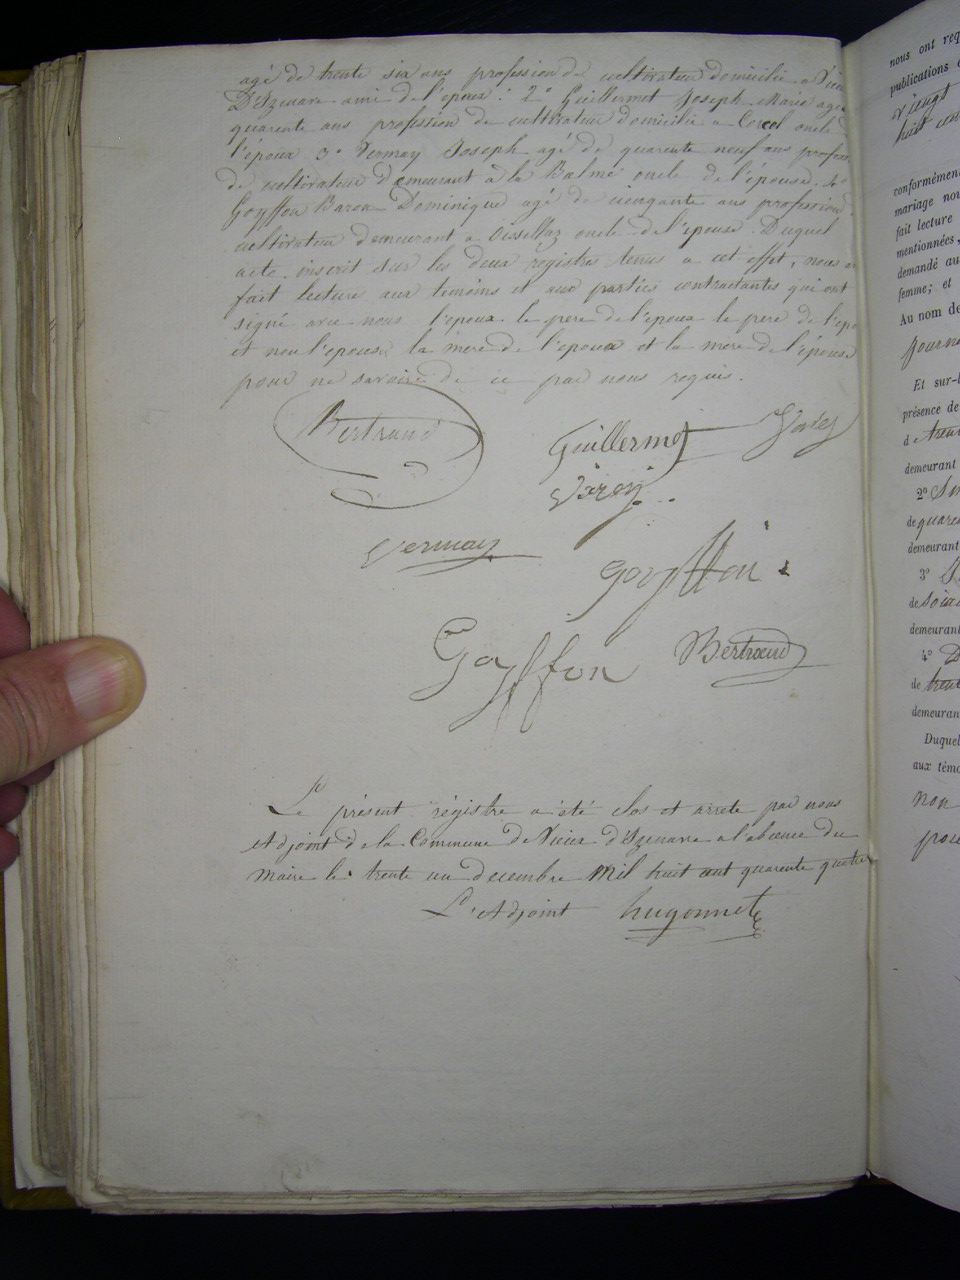 agé de trente six ans profession de cultivateur domicilié a Vieu
D'Izenave ami de l'époux : 2° Guillermet Joseph Marie agé
quarente ans profession de cultivateur domicilié a Corcel oncle d
l'époux 3° Vermay Joseph agé de quarente neuf ans profess
de cultivateur demeurant à la Balme oncle de l'épouse. 4°
Goyffon Baron Dominique agé de cienquante ans profession
cultivateur demeurant a Oissellaz oncle de l'épouse. Duquel
acte inscrit sur les deux régistres tenus a cet effet, nous
fait lecture aux temoins et aux parties contractantes qui ont
signé avec nous l'époux le pere de l'époux le pere de l'épo
et non l'épouse la mere de l'époux et la mere de l'épouse
pour ne savoir de ce par nous requis.
Bertrand Guillermet
Vermay
Goyffon
Goyffon Bertrand
Le présent régistre a été clos et arrete par nous
Adjoint de la Commune de Vieux d'Izenave a l'absence du
maire le trente un decembre mil huit cent quarente quatre
L'Adjoint hugonnet
nous ont req
publications
huit
conformémen
mariage nou
fait lecture
mentionnées,
demandé au
femme; et
Au nom de
Et sur-l
présence de
de
demeurant
2°
de quare
demeurant
3°
de soixa
demeurant
4°
de trent
demeuran
Duquel
aux témo
non
pour